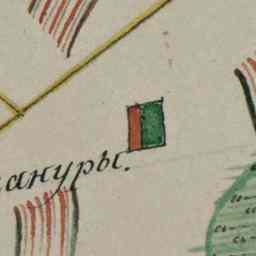 ануры.